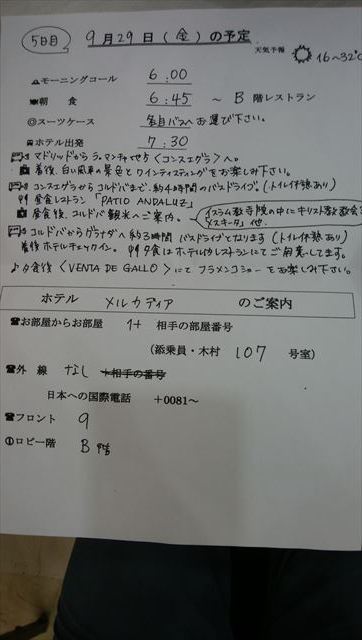 5日目 9月29日(金)の予定
天気予報 16~32℃
モーニングコール 6:00
朝食 6:45 ~ B 階レストラン
◎スーツケース 各自バスへお運び下さい。
ホテル出発 7:30
マドリッドからラ・マンチャ地方〈コンスエグラ〉へ。
着後、白い風車の景色とワインティスティングをお楽しみ下さい。
コンスエグラからコルドバまで、約4時間のバスドライブ。(トイレ休憩あり)
昼食レストラン「PATIO ANDALUZ」
昼食後、コルドバ観光へご案内。
イスラム教寺院の中にキリスト教教会
メスキータ」他、
コルドバからグラナダへ約3時間バスドライブとなります(トイレ休憩あり)
着後ホテルチェックイン。夕食はホテル内レストランにてご用意してます。
♪夕食後〈VENTA DE GALLO〉にてフラメンコショーをお楽しみ下さい。
ホテル メルカディア のご案内
☎お部屋からお部屋 7+ 相手の部屋番号
(添乗員・木村 107 号室)
☎外線 なし +相手の番号
日本への国際電話 +0081~
☎フロント 9
①ロビー階 B階